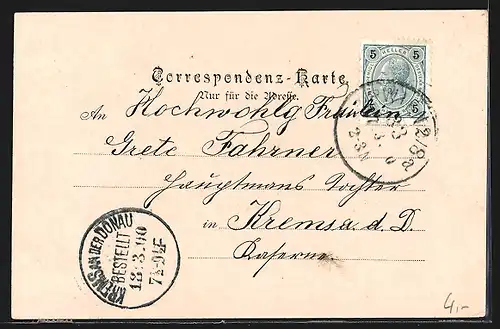 5 HELLER 5
Correspondenz-Karte
Nur für die Adresse.
An Hochwohlg Fräulein
Grete Fahrner
Hauptmans Tochter
in Krems a. d. D.
Kaserne
KREMS AN DER DONAU
BESTELLT
13:3.00
7½-9½F
4,-